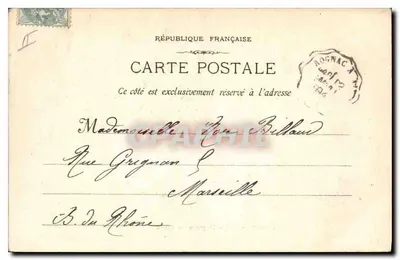 RÉPUBLIQUE FRANÇAISE
CARTE POSTALE
Ce côté est exclusivement réservé à l'adresse
ROGNAC A
Mademoiselle Billaud
Rue Grignan 5
Marseille
B. du Rhône